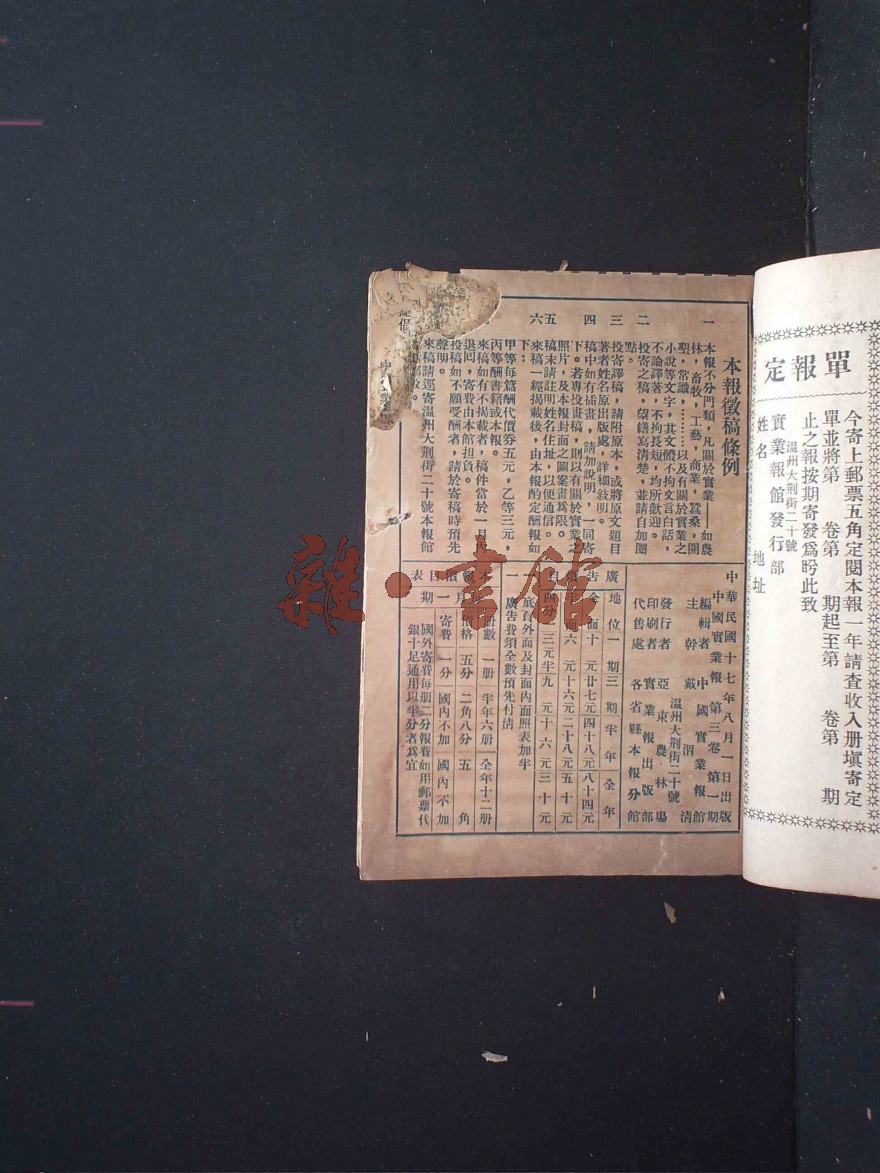 定報單
今寄上郵票五角定閱本報一年請查收入册塡寄定
單並將第　卷第　期起至第　卷第　期
止之報按期寄發爲盻此致
溫州大荆街二十號
實業報館發行部
姓名　地址
本報徵稿條例
一　本報不分門類，凡關於實業——如農
林，畜牧，工藝，商業，蠶桑，開
墾，常識，………以及有關於實業之
小說等文字，其文體不拘文言白話，
不論譯著，不拘長短，均所歡迎。
二　投寄之稿，望繕寫清楚，並請自加圈
點。
三　投寄譯稿，請附原本，或將原文題目
著者姓名原出版處，詳細敍明。
四　稿中如有插畫，請加說明，一同寄
下。若專投畫稿，則以有關於實業之
照片，及本報封面之圖案畫爲限。
五　稿末請註明姓名住址，以便通信。
六　來稿一經揭載後，由本報酌定酬報如
下：
甲等每篇酬代價券五元，乙等三元，
丙等酬書籍或本報。
來稿如有不揭載者，稿件當於一月內
退囘，寄費由本館担負。
投稿如不願受酬者，請於寄稿時預先
聲明。
來稿請逕寄温州大荆街二十號本報館
中華民國十七年八月一日出版
中國實業報第三卷第一期
編輯者　中國實業報館
主幹　戴渭清
溫州大荆街二十號
發行者　亞東農林場
印刷者　實業報出版部
代售處　各省縣本報分館
廣告
地位　一期　三期　半年　全年
全面　十元　廿七元　四十八元　八十四元
六元　十六元　二十八元　五十元
四分　三元半　九元　十六元　三十元
一　底頁外面及封面內面照表加半
一　廣告費須全數預先付清
本報價目表
册數　一册　半年六册　全年十二册
價格　五分　二角八分　五角
寄費　一分　國內不加　國內不加
國外寄費每册二分報費如用郵票代
銀十足通用以半分者爲宜
雜·書館